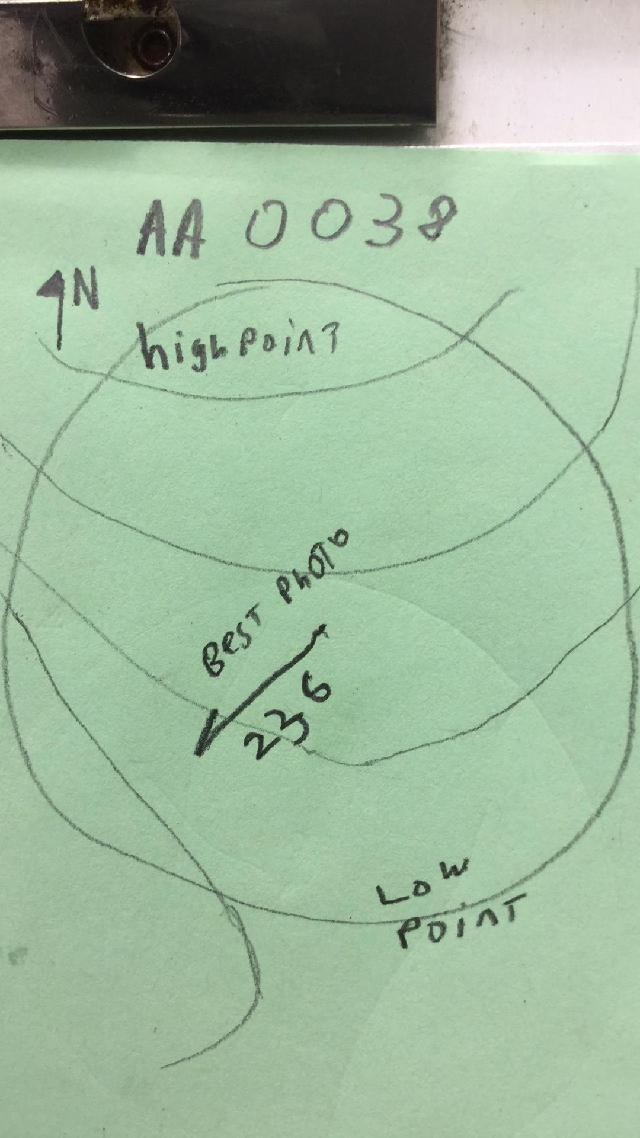 AA 0038
N
high point
BEST PHOTO
236
LOW
POINT